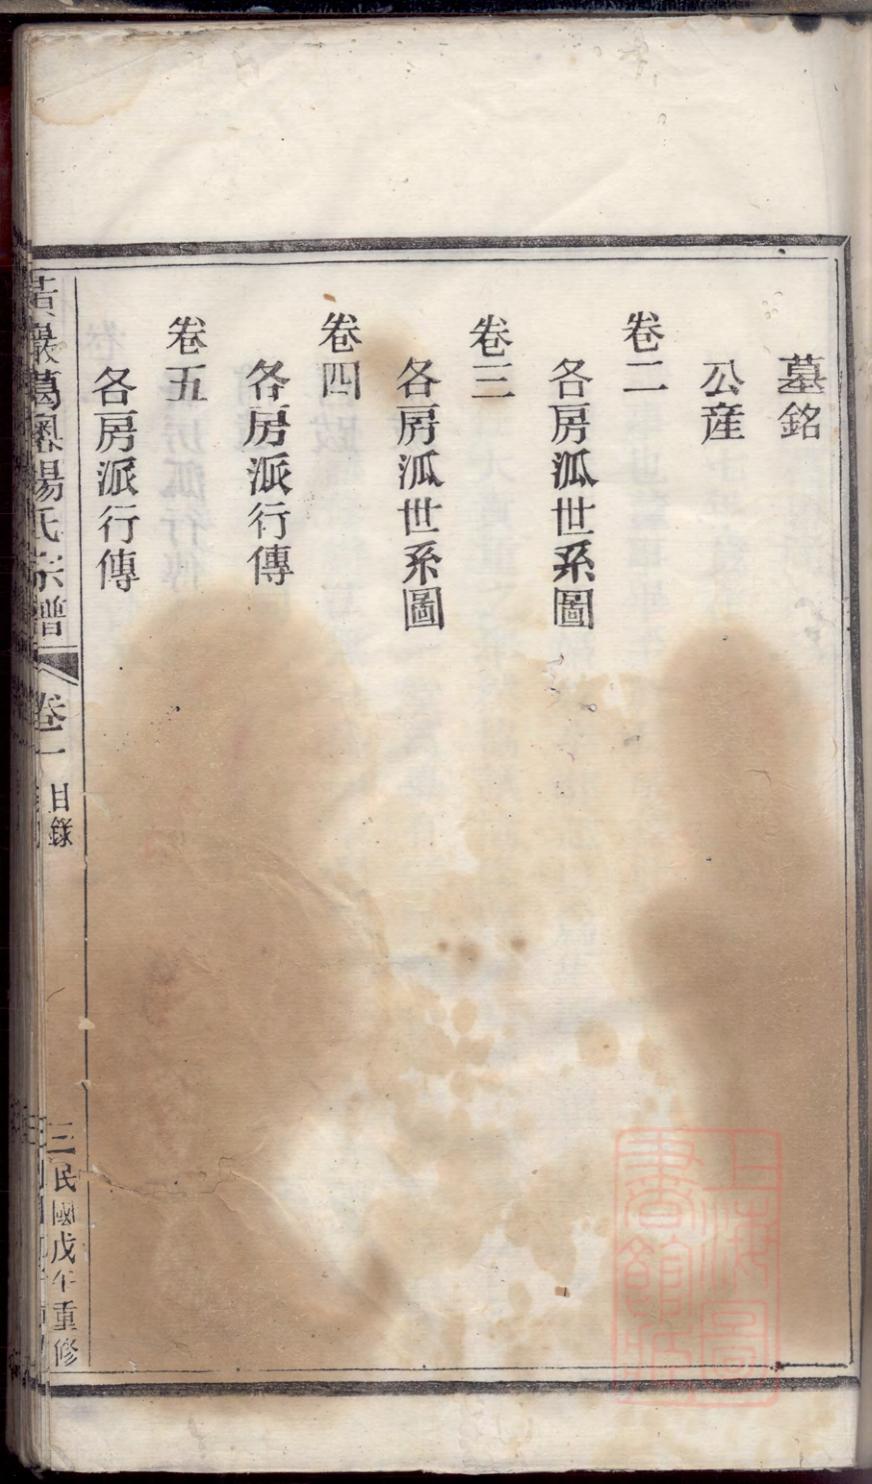 墓銘
公産
卷二
各房泒世系圖
卷三
各房泒世系圖
卷四
各房派行傳
卷五
各房派行傳
黃巖葛奧楊氏宗譜
卷一
目錄
三
民國戊午重修
上海圖書館藏